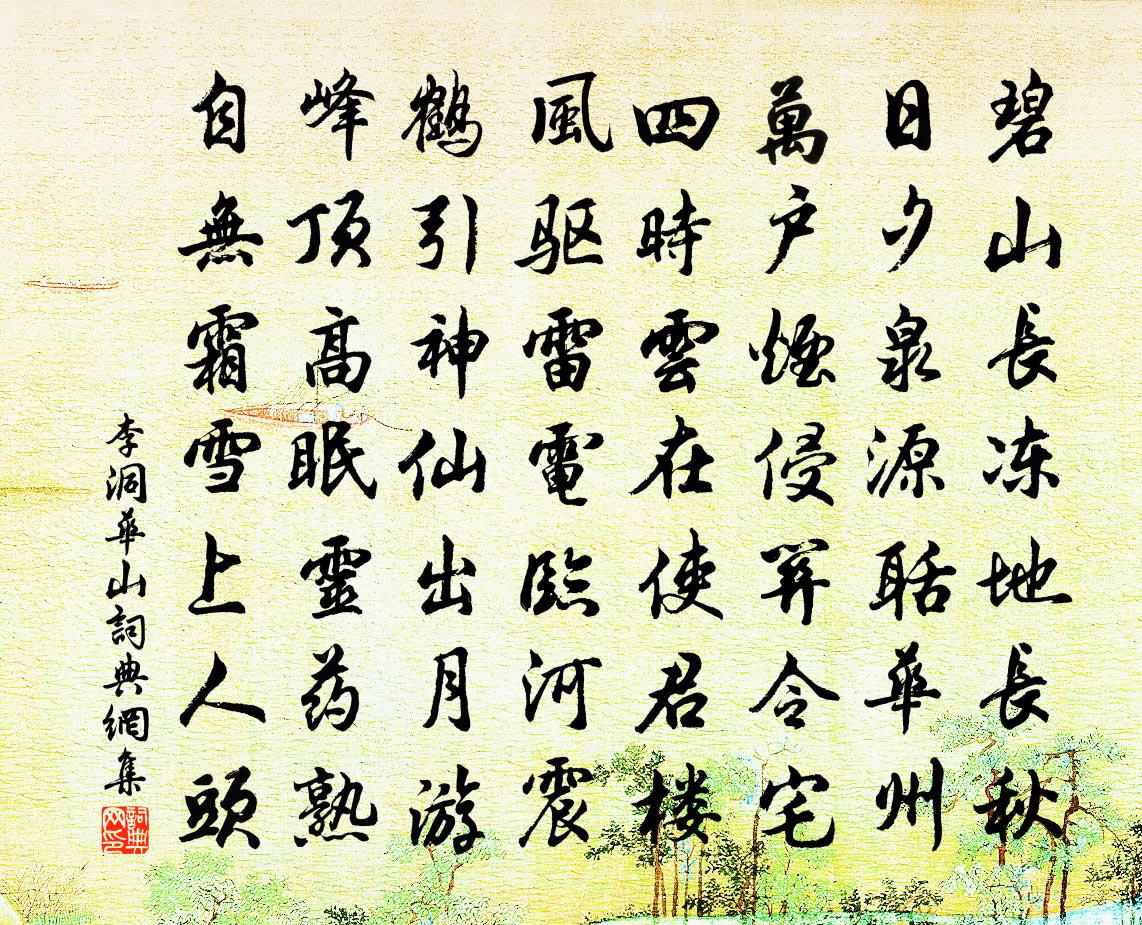 碧山長冻地長秋
日夕泉源聒華州
萬户煙侵關令宅
四時雲在使君楼
風驱雷電臨河震
鶴引神仙出月游
峰顶高眠靈药熟
自無霜雪上人頭
李洞華山詞典網集
詞典网印